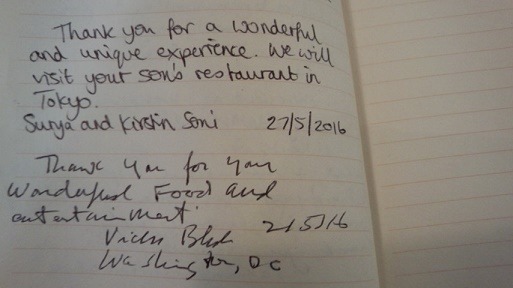 Thank you for a wonderful
and unique experience. We will
visit your son's restaurant in
Tokyo.
Surya and Kirstin Soni 27/5/2016
Thank you for your
wonderful Food and
entertainment.
Washington, DC